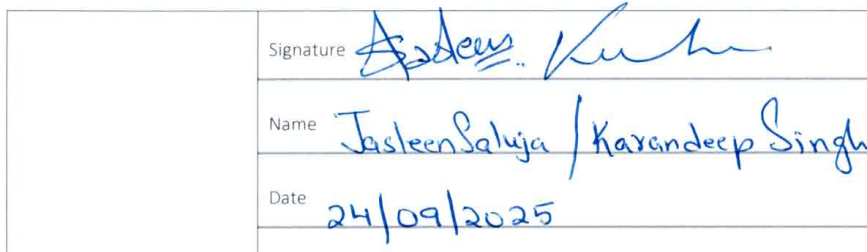 Signature
Name Jasleen Saluja / Karandeep Singh
Date 24/09/2025